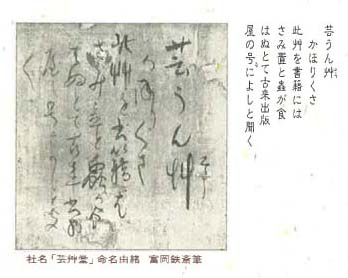 芸うん艸
かほりくさ
此艸を書籍には
さみ置と蟲が食
はぬとて古来出版
屋の号によしと聞く
芸うん艸
かほりくさ
此艸を書籍に
さみ置と蟲が食
社名「芸艸堂」命名由緒 富岡鉄斎筆